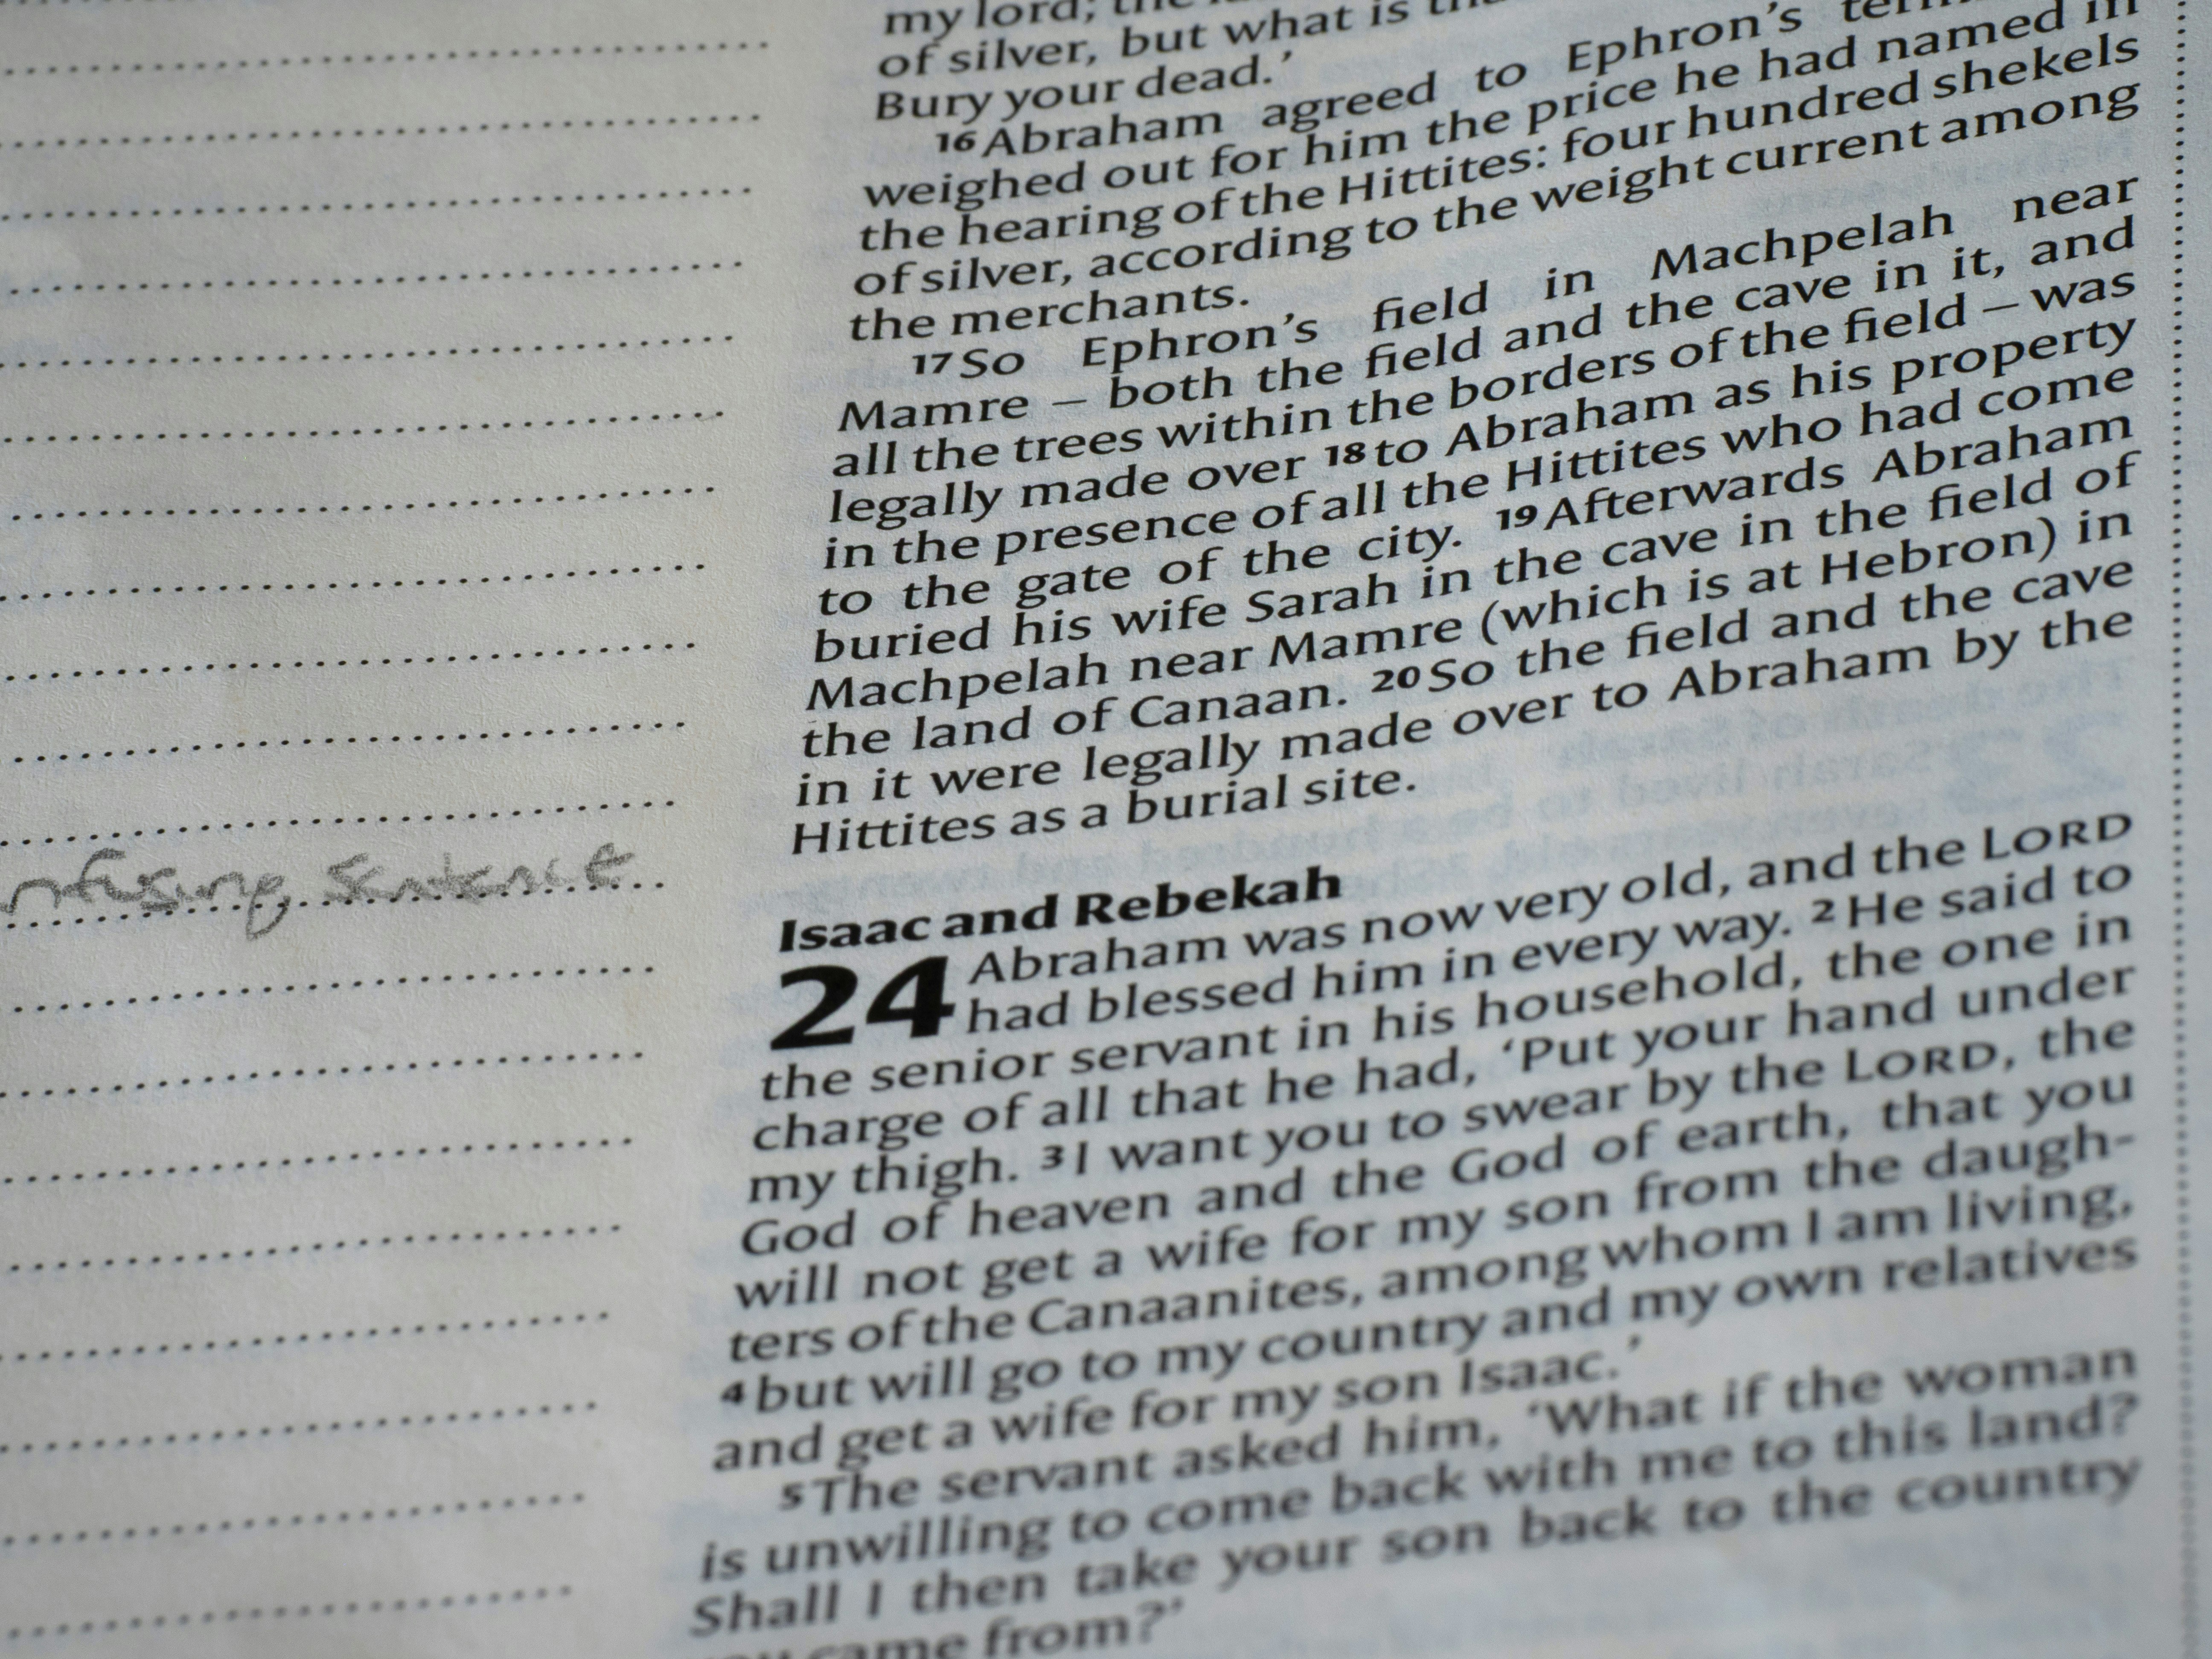 my lord; the
of silver, but what is
Bury your dead.’
16 Abraham agreed to Ephron’s
weighed out for him the price he had named in
the hearing of the Hittites: four hundred shekels
of silver, according to the weight current among
the merchants.
17 So Ephron’s field in Machpelah near
Mamre – both the field and the cave in it, and
all the trees within the borders of the field – was
legally made over 18 to Abraham as his property
in the presence of all the Hittites who had come
to the gate of the city. 19 Afterwards Abraham
buried his wife Sarah in the cave in the field of
Machpelah near Mamre (which is at Hebron) in
the land of Canaan. 20 So the field and the cave
in it were legally made over to Abraham by the
Hittites as a burial site.
nfusing sentence
Isaac and Rebekah
24 Abraham was now very old, and the LORD
had blessed him in every way. 2 He said to
the senior servant in his household, the one in
charge of all that he had, ‘Put your hand under
my thigh. 3 I want you to swear by the LORD, the
God of heaven and the God of earth, that you
will not get a wife for my son from the daugh-
ters of the Canaanites, among whom I am living,
4 but will go to my country and my own relatives
and get a wife for my son Isaac.’
5 The servant asked him, ‘What if the woman
is unwilling to come back with me to this land?
Shall I then take your son back to the country
came from?’